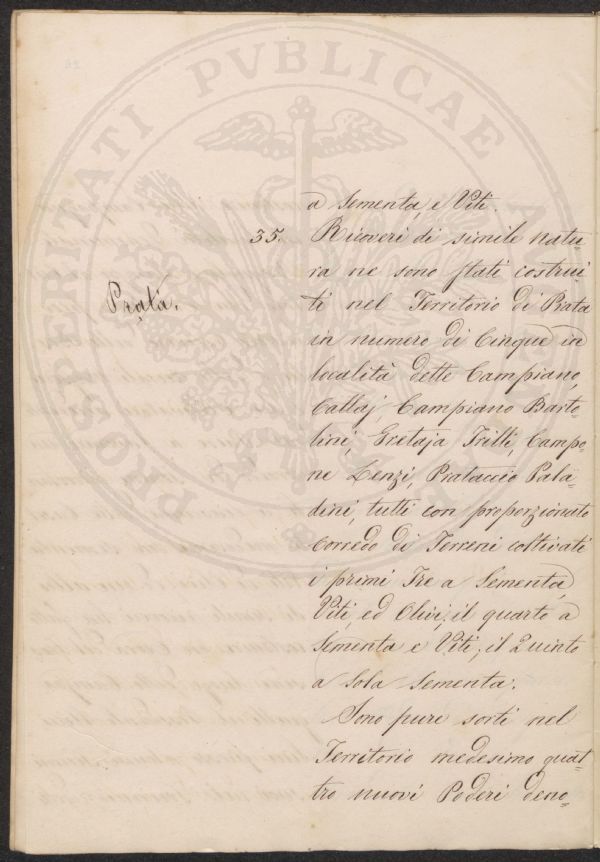 a Sementa, e Viti.
35. Ricoveri di simile natu-
ra ne sono stati costrui
Prata. ti nel Territorio di Prata
in numero di Cinque in
località dette Campiano
Callaj, Campiano Barto-
lini, Gretaja Trilli, Campo-
ne Lenzi, Prataccio Pala-
dini, tutti con proporzionato
Corredo di Terreni coltivati
i primi Tre a Sementa,
Viti, ed Olivi, il quarto a
Sementa e Viti, il Quinto
a Sola Sementa.
Sono pure sorti nel
Territorio medesimo quat-
tro nuovi Poderi deno-
PROSPERITATI PVBLICAE